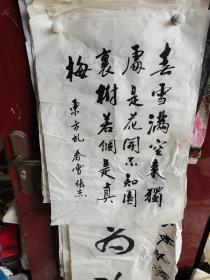 春雪滿空來觸
處是花開不知園
裏樹若個是真
梅
東方虬春雪
为